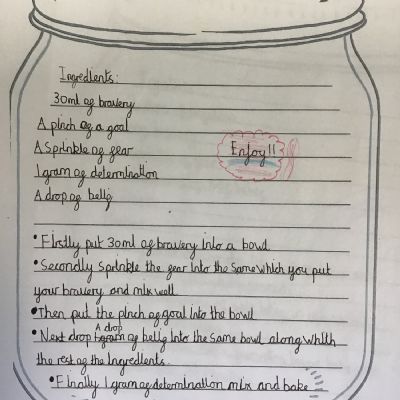 Ingredients:
30ml of bravery
A pinch of a goal
A sprinkle of fear
Enjoy!!
1 gram of determination
A drop of belif
• Firstly put 30ml of bravery into a bowl
• Secondly sprinkle the fear into the same which you put
your bravery and mix well
• Then put the pinch of goal into the bowl
A drop
• Next drop 1 gram of belif into the same bowl along whith
the rest of the ingredients.
• Finally 1 gram of determination mix and bake